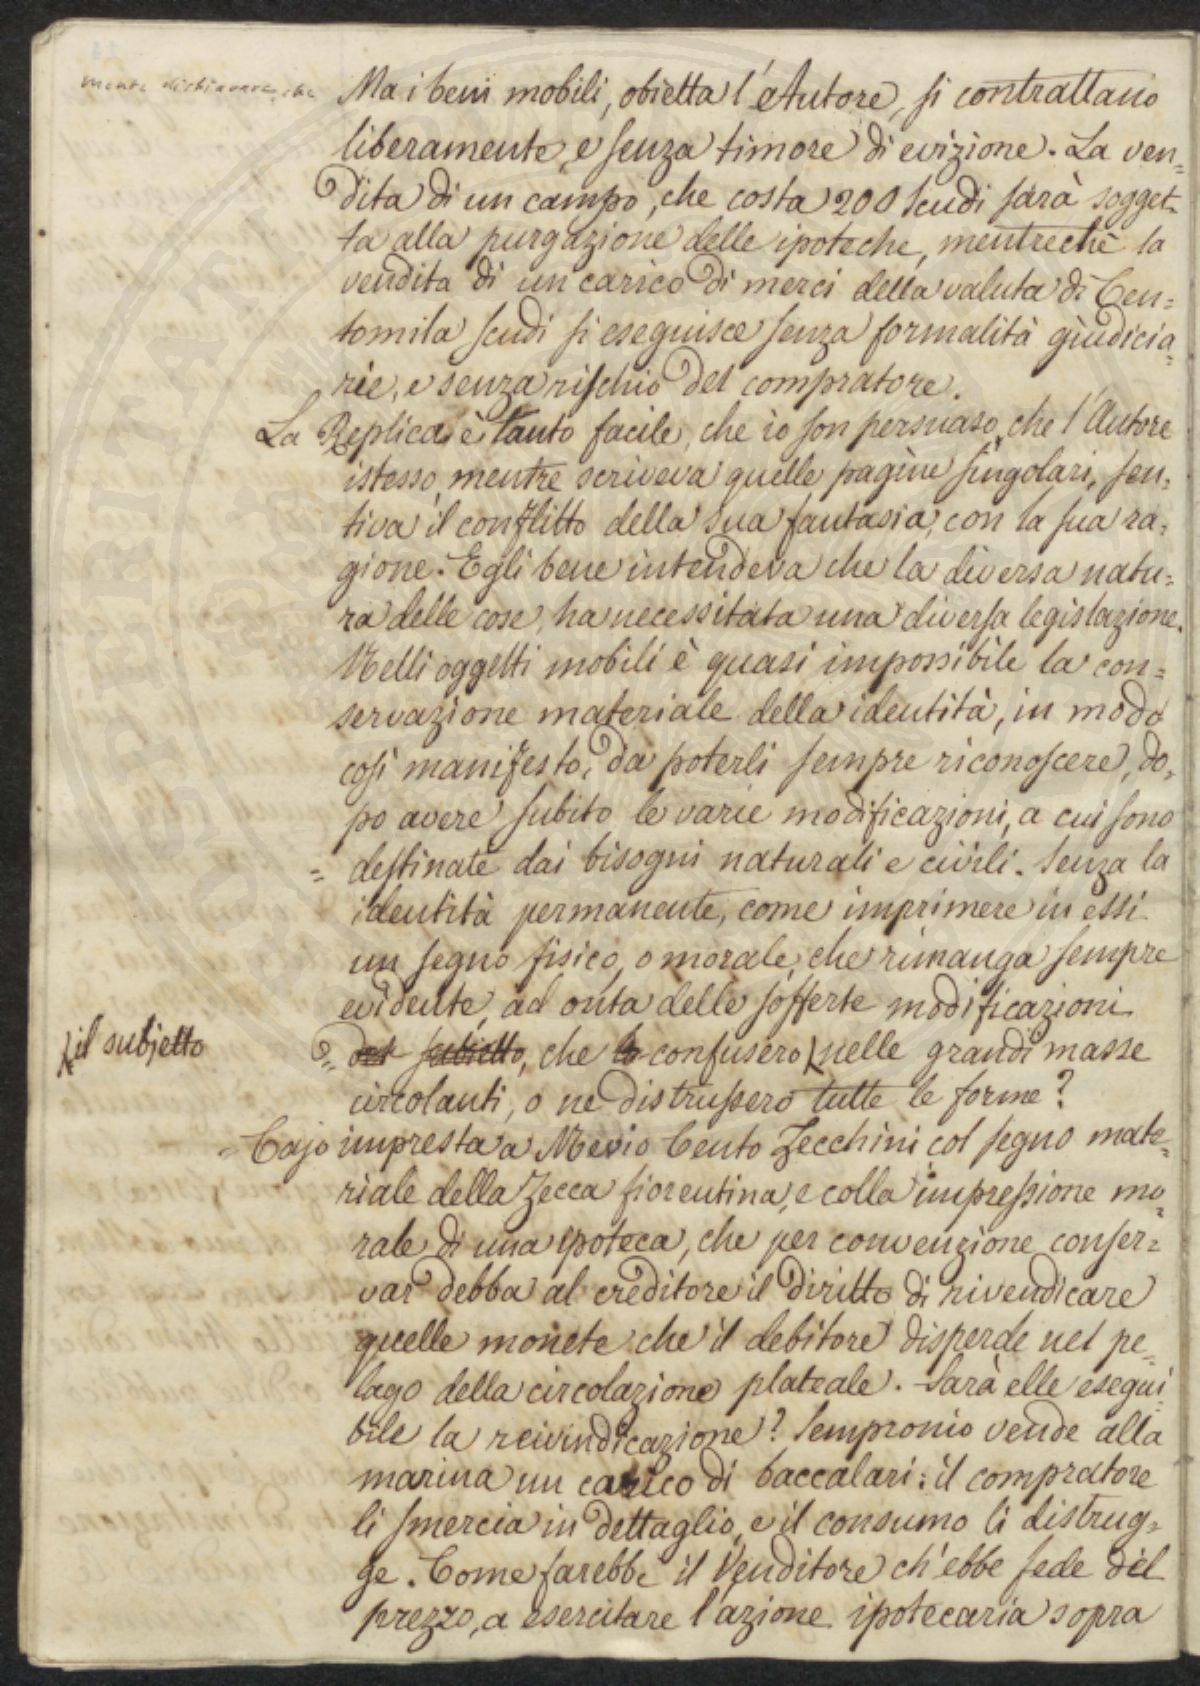 Ma i beni mobili, obietta l'Autore, si contrattano
liberamente, e senza timore di evizione. La ven=
dita di un campo, che costa 200 scudi sarà sogget=
ta alla purgazione delle ipoteche, mentrechè la
vendita di un carico di merci della valuta di Cen=
tomila scudi si eseguisce senza formalità giudicia=
rie, e senza rischio del compratore.
La Replica è tanto facile, che io son persuaso, che l'Autore
istesso, mentre scriveva quelle pagine singolari, sen=
tiva il conflitto della sua fantasia, con la sua ra=
gione. Egli bene intendeva che la diversa natu=
ra delle cose, ha necessitata una diversa legislazione.
Nelli oggetti mobili è quasi impossibile la con=
servazione materiale della identità, in modo
così manifesto, da poterli sempre riconoscere, do=
po avere subito le varie modificazioni, a cui sono
= destinate dai bisogni naturali e civili. Senza la
identità permanente, come imprimere in essi
un segno fisico, o morale, che rimanga sempre
evidente, ad onta delle sofferte modificazioni
il subjetto
= del subietto, che lo confusero nelle grandi masse
circolanti, o ne distrussero tutte le forme?
= Cajo impresta a Mevio Cento Zecchini col segno mate=
riale della Zecca fiorentina, e colla impressione mo=
rale di una ipoteca, che per convenzione conser=
var debba al creditore il diritto di rivendicare
quelle monete che il debitore disperde nel pe=
lago della circolazione plateale. Sarà elle esegui=
bile la reivindicazione? Sempronio vende alla
marina un carico di baccalari: il compratore
li smercia in dettaglio, e il consumo li distrug=
ge. Come farebbe il Venditore ch'ebbe fede del
prezzo, a esercitare l'azione ipotecaria sopra